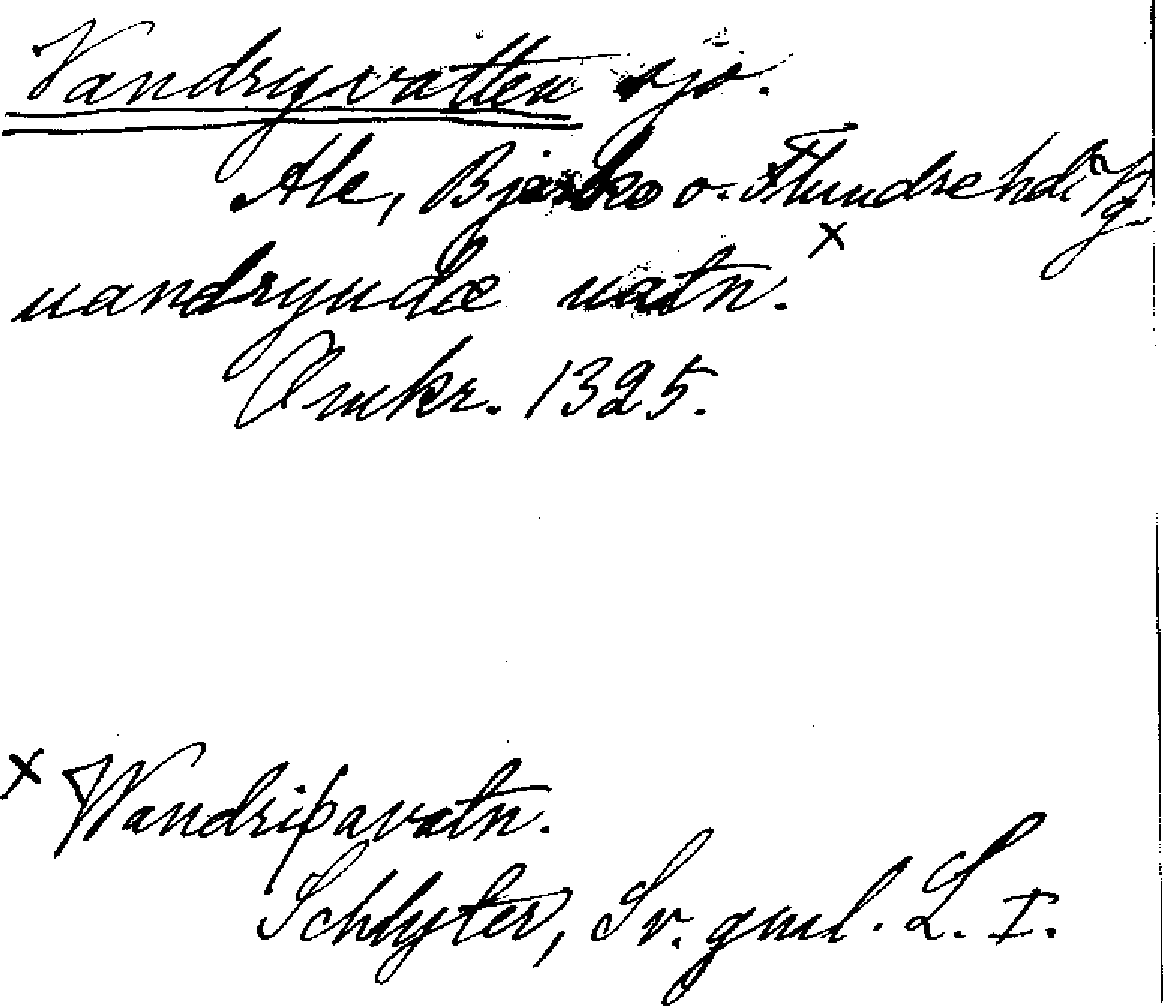 Vandryvatten sjö.
Ale, Bjärke o. Flundre hdr Vg.
uandryudæ uatn. x
Omkr. 1325.
x Wandriþavatn.
Schlyter, Sv. gml. L. I.